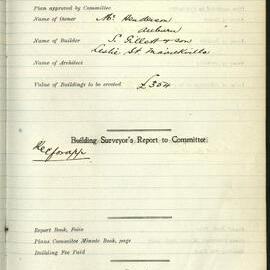 Plan approved by Committee
Name of Owner Mr Henderson
Auburn
Name of Builder S. Gillett & son
Leslie St Marrickville
Name of Architect
Value of Buildings to be erected £354
Building Surveyor's Report to Committee.
Report Book, Folio
Plans Committee Minute Book, page
Building Fee Paid